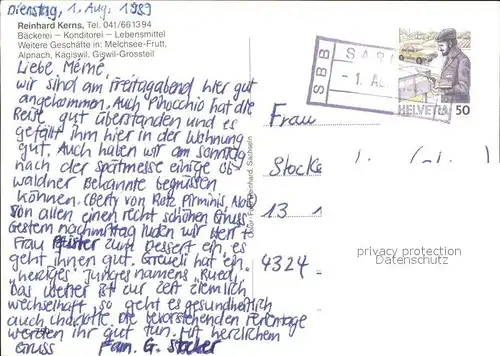 Dienstag, 1. Aug. 1989
Reinhard Kerns, Tel. 041/661394
Bäckerei – Konditorei – Lebensmittel
Weitere Geschäfte in: Melchsee-Frutt,
Alpnach, Kägiswil, Giswil-Grossteil
Liebe Mémé,
wir sind am Freitagabend hier gut
angekommen. Auch Pinocchio hat die
Reise gut überstanden und es
gefällt ihm hier in der Wohnung
gut. Auch haben wir am Sonntag
nach der Spätmesse einige Ob-
waldner Bekannte begrüssen
können. (Berty von Rotz, Pirminis, Alois)
Von allen einen recht schönen Gruss
Gestern nachmittag luden wir Herr +
Frau Pfister zum Dessert ein, es
geht ihnen gut. Greueli hat ein
"herziges" Junges namens "Ruedi,
Das Wetter ist zur Zeit ziemlich
wechselhaft, so geht es gesundheitlich
auch Charlotte. Die bevorstehenden Ferientage
werden ihr gut tun. Mit herzlichem
Gruss Fam. G. Stocker
SBB
- 1. AU
HELVETIA 50
Frau
Stocke
13 1
4324
privacy protection
Datenschutz